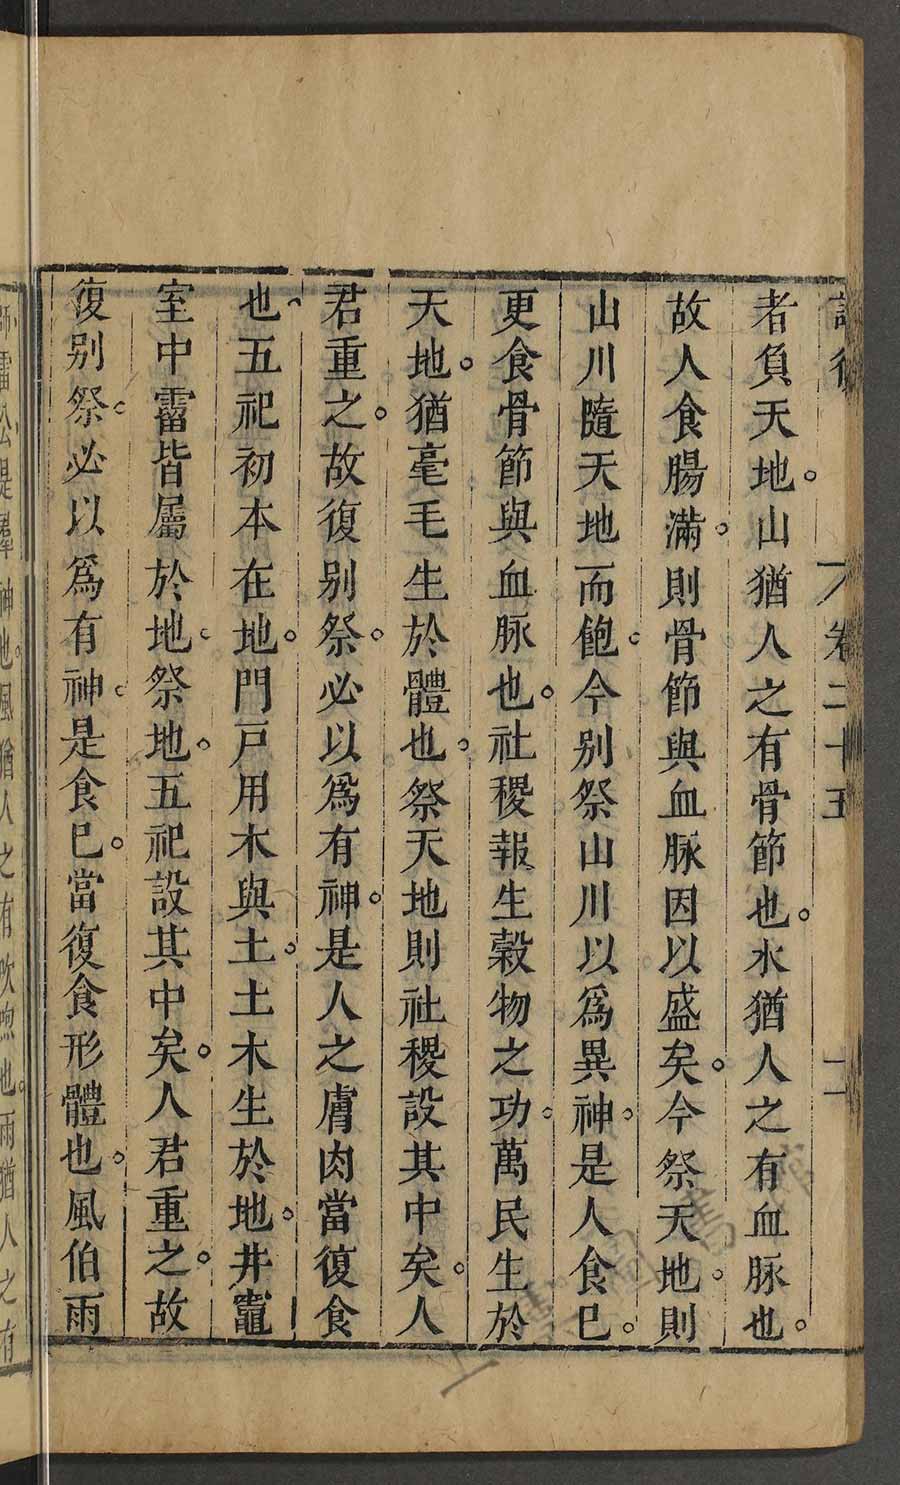 卷二十五
二
者負天地。山猶人之有骨節也。水猶人之有血脉也。
故人食腸滿。則骨節與血脉因以盛矣。今祭天地。則
山川隨天地而飽。今別祭山川以為異神。是人食已。
更食骨節與血脉也。社稷報生穀物之功。萬民生於
天地。猶毫毛生於體也。祭天地則社稷設其中矣。人
君重之。故復別祭。必以為有神。是人之膚肉當復食
也。五祀初本在地。門戸用木與土。土木生於地。井竈
室中霤皆屬於地。祭地。五祀設其中矣。人君重之。故
復別祭。必以爲有神。是食已。當復食形體也。風伯雨
神也。風猶人之有吹喣也。雨猶人之有